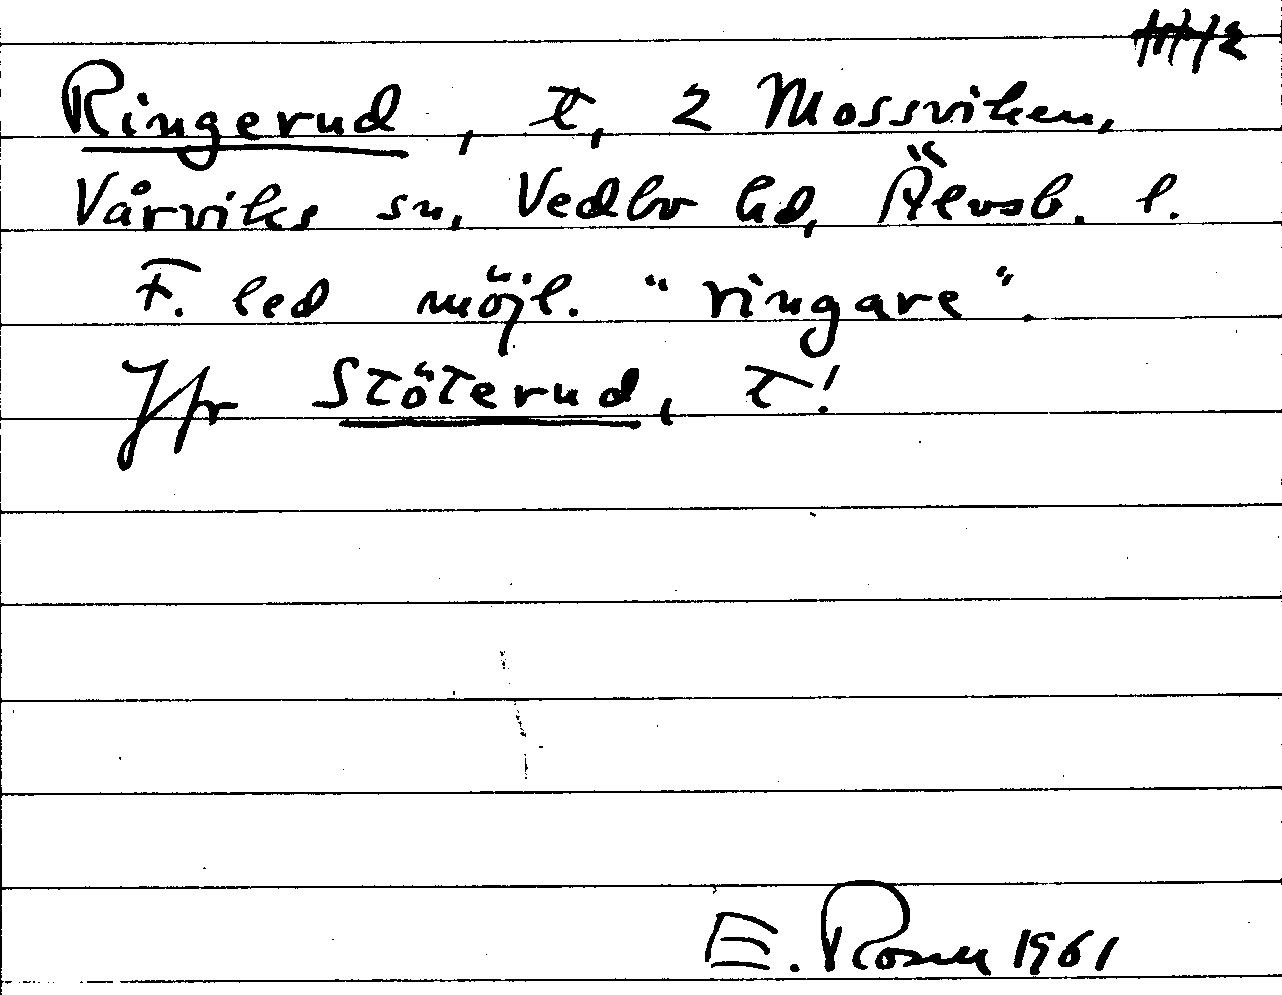 Ringerud, t, 2 Mossviken,
Vårviks sn, Vedbo hd, Älvsb. l.
F. led möjl. "ringare".
Jfr Stöterud, t!
E. Rosell 1961